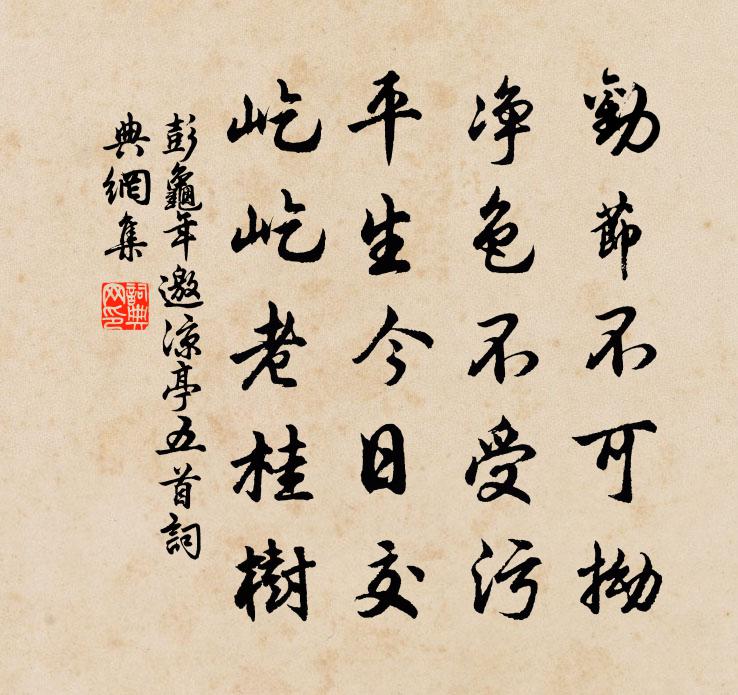 勁節不可拗
净色不受污
平生今日交
屹屹老桂樹
彭龜年邀涼亭五首詞
典網集
詞典
网印